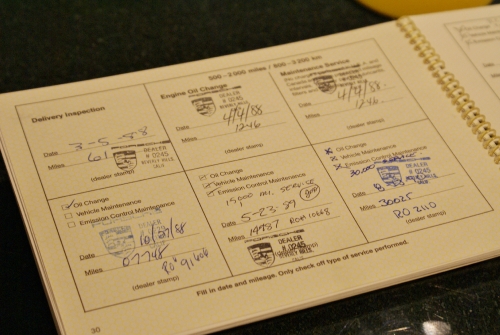 500 - 2000 miles / 800 - 3200 km
Delivery Inspection
Engine Oil Change
Maintenance Service
DEALER
# 0245
4/4/88
Date
1246
Miles
(dealer stamp)
DEALER
# 0245
4/4/88
Date
1246
Miles
(dealer stamp)
3-5-88
Date
61
Miles
DEALER
# 0245
BEVERLY HILLS
CALIF.
(dealer stamp)
Oil Change
Vehicle Maintenance
Emission Control Maintenance
10/27/88
Date
07748
Miles
(dealer stamp)
Oil Change
Vehicle Maintenance
Emission Control Maintenance
15,000 mi. SERVICE
5-23-89
Date
14987
Miles
RO# 10668
DEALER
# 0245
BEVERLY HILLS
(dealer stamp)
Oil Change
Vehicle Maintenance
Emission Control Maintenance
30,000
DEALER
# 0245
Date
30025
Miles
RO 2110
(dealer stamp)
Fill in date and mileage. Only check off type of service performed.
30